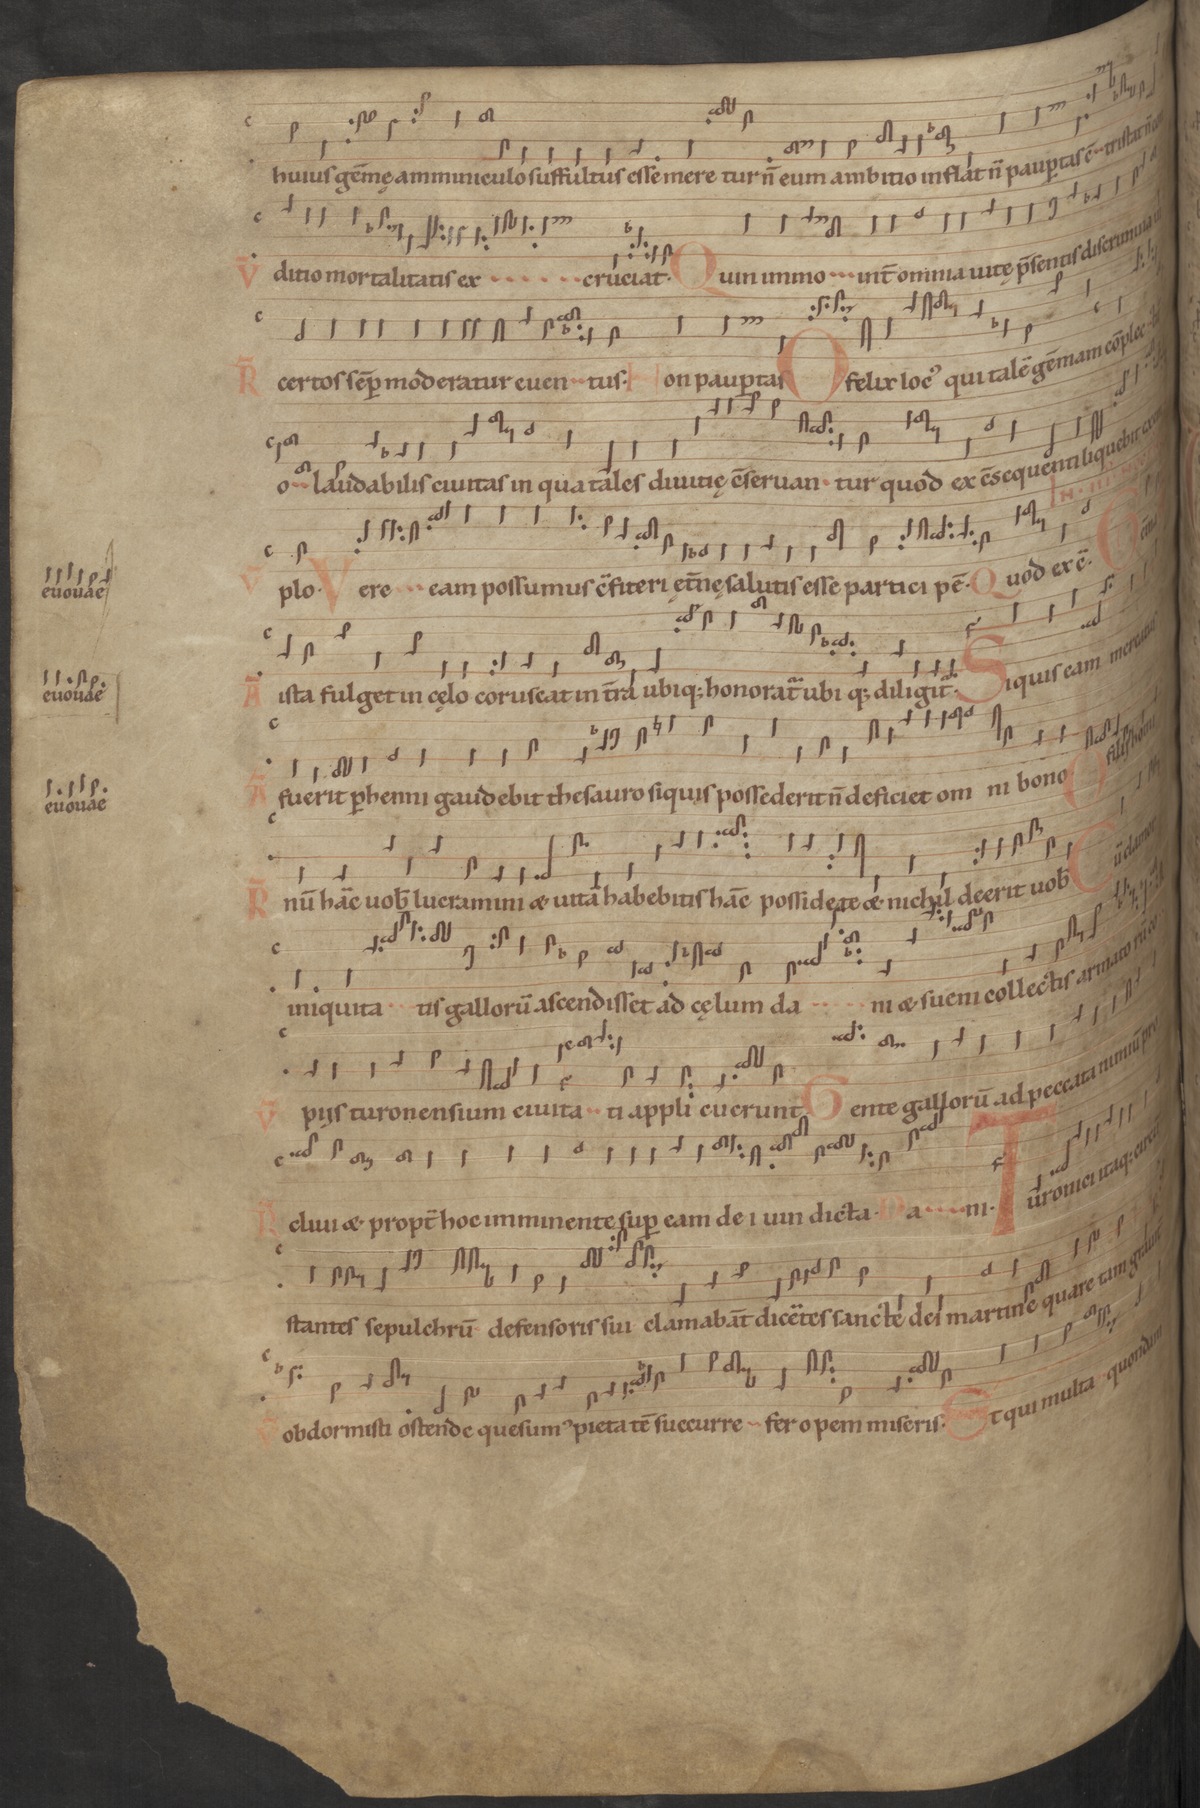 huius gēmę amminiculo suffultus esse mere tur n̄ eum ambitio inflat n̄ paup̲tas ē tristat n̄
V̄ ditio mortalitatis ex cruciat. Quin immo int̄ omnia uitę p̄sentis discrimina
R̄ certos sēp̲ moderatur euen tus. Non paup̲tas O felix loc᷒ qui talē gēmam cōplec
o laudabilis ciuitas in qua tales diuitię c̄seruan tur quod ex c̄sequenti liquebit
V̄ plo. Vere eam possumus c̄fiteri ęt̄nę salutis esse partici pē. Quod ex ē.
euouae
Ā ista fulget in cęlo coruscat in t̄ra ubiq; honorat᷒ ubi q; diligit᷒. Si quis eam mereatur
euouae
Ā fuerit p̲henni gaudebit thesauro siquis possederit n̄ deficiet om ni bono O
euouae
R̄ nū hāc uob̄ lucramini & uitā habebitis hāc possidete & nichil deerit uob̄ Cū clamor
iniquita tis gallorū ascendisset ad cęlum da ni & sueui collectis armato rū
V̄ pijs turonensium ciuita ti appli cuerunt. Gente gallorū ad peccata nimiū pro
R̄ cliui & propt̄ hoc imminente sup̲ eam de i uin dicta Da ni. Turonici itaq; circū
stantes sepulchrū defensoris sui clamabāt dicētes sancte dei martine quare tam
V̄ obdormisti ostende quesum᷒ pieta tē succurre fer opem miseris. Et qui multa quondam